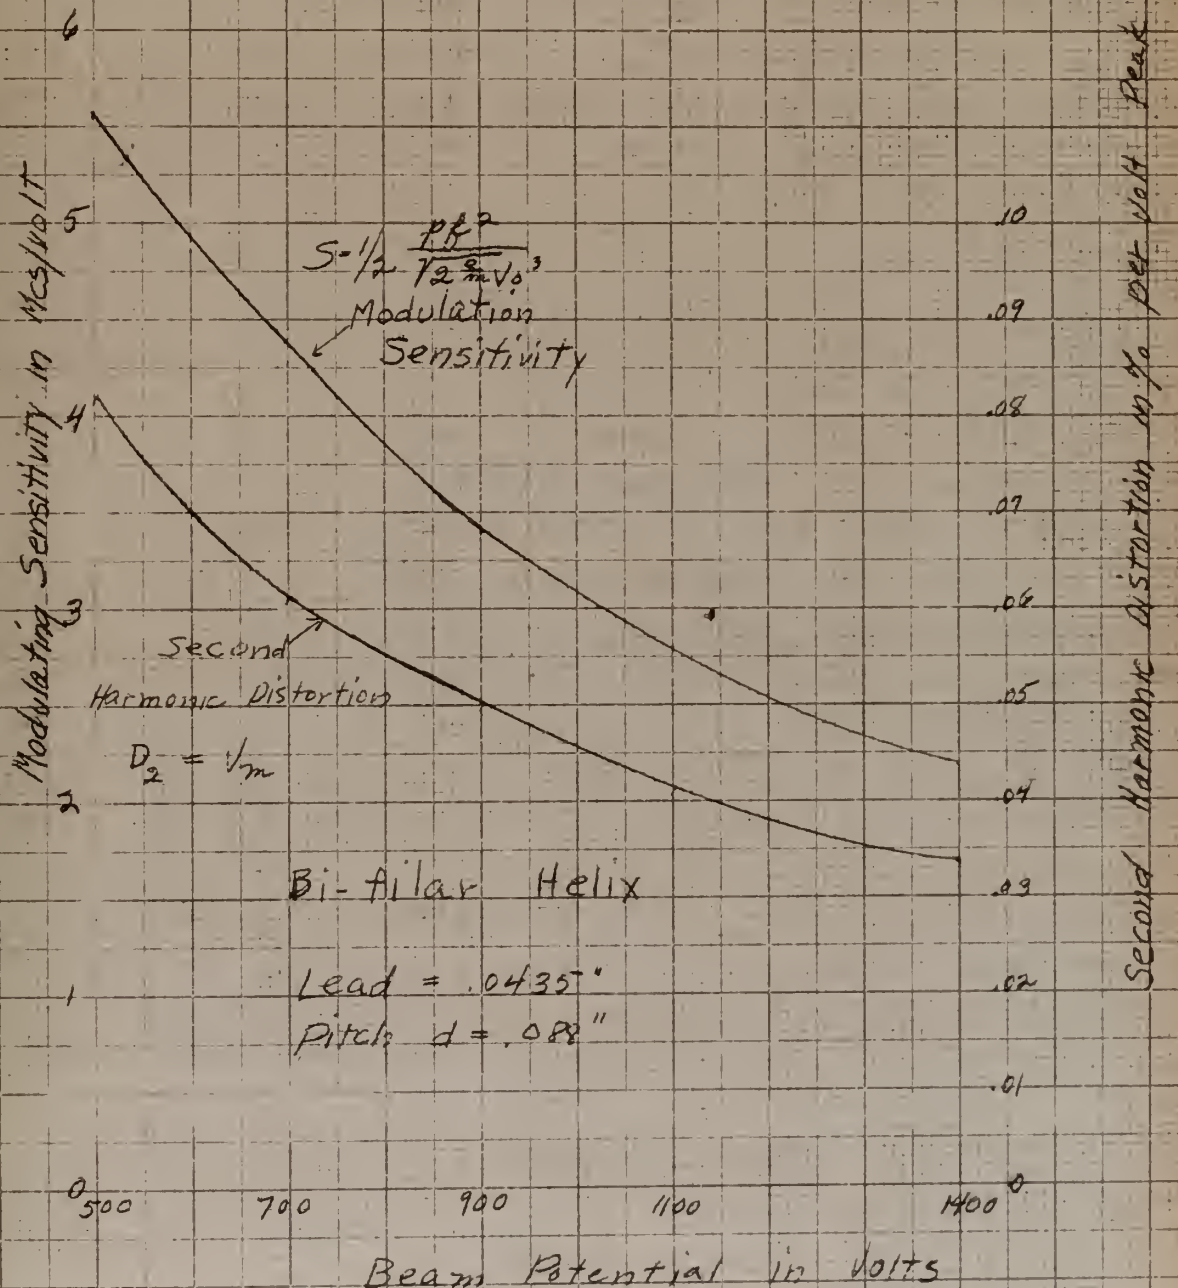 6
5
4
3
2
1
0
Modulating Sensitivity in Mcs/volt
S=1/2 pf²/√(2 e/m V₀³)
Modulation
Sensitivity
Second
Harmonic Distortion
D₂ = 1/m
Bi-filar Helix
Lead = .0435"
Pitch d = .088"
.10
.09
.08
.07
.06
.05
.04
.03
.02
.01
0
Second Harmonic Distortion in % per volt Peak
500 700 900 1100 1400
Beam Potential in Volts